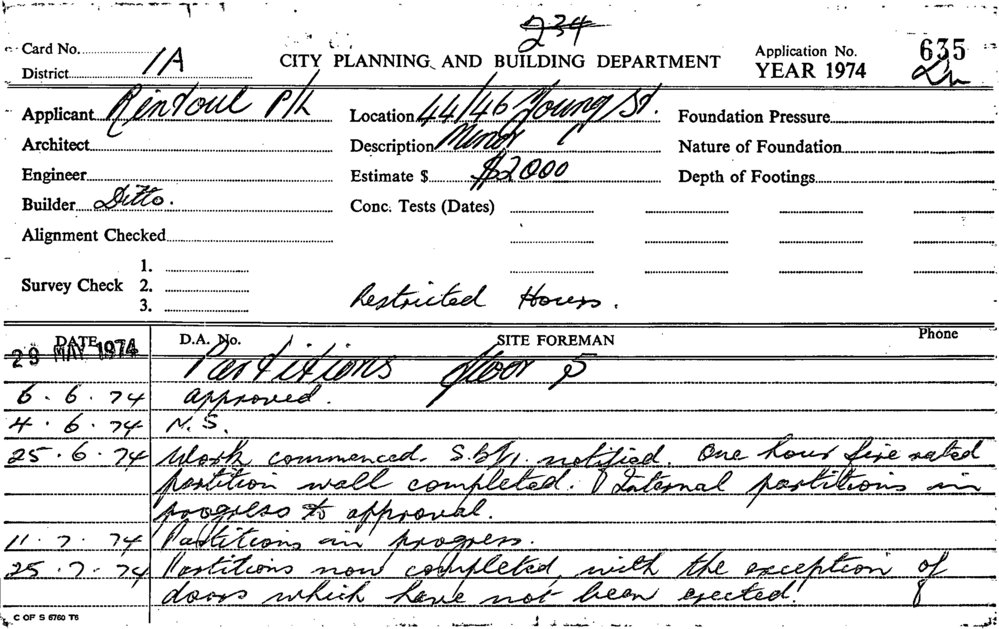 234
Card No. Application No. 635
District 1A CITY PLANNING AND BUILDING DEPARTMENT YEAR 1974
Applicant Rintoul P/L Location 44/46 Young St. Foundation Pressure
Architect Description Minor Nature of Foundation
Engineer Estimate $ $2000 Depth of Footings
Builder Ditto. Conc. Tests (Dates)
Alignment Checked
1.
Survey Check 2.
3. Restricted Hours.
DATE D.A. No. SITE FOREMAN Phone
29 MAY 1974 Partitions floor 5
6.6.74 approved.
4.6.74 N.S.
25.6.74 Work commenced. notified. One hour fire rated
partition wall completed. Internal partitions in
progress to approval.
11.7.74 Partitions in progress.
25.7.74 Partitions now completed with the exception of
doors which have not been erected.
C OF S 6760 T6